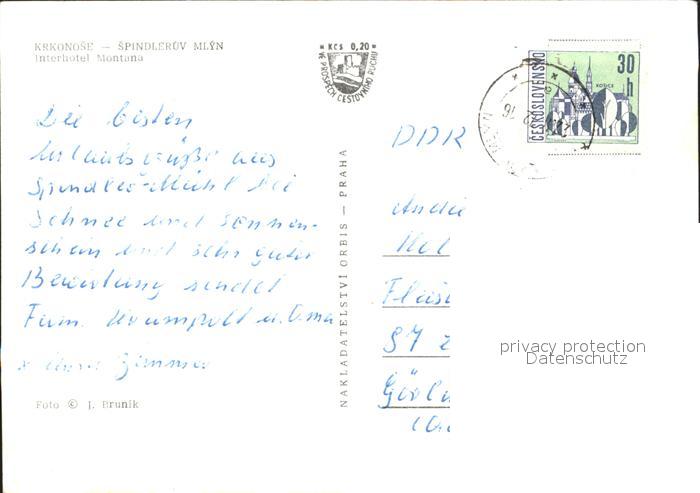 KRKONOŠE — ŠPINDLERŮV MLÝN
Interhotel Montana
* KCS 0,20 *
VE PROSPĚCH CESTOVNÍHO RUCHU
ČESKOSLOVENSKO
30 h
KOŠICE
Die besten
Urlaubsgrüße aus
Spindler-Mühl bei
Schnee und Sonnen-
schein und sehr guter
Bewirtung sendet
Fam. u. Oma
x
NAKLADATELSTVÍ ORBIS — PRAHA
DDR
privacy protection
Datenschutz
Foto © J. Brunik